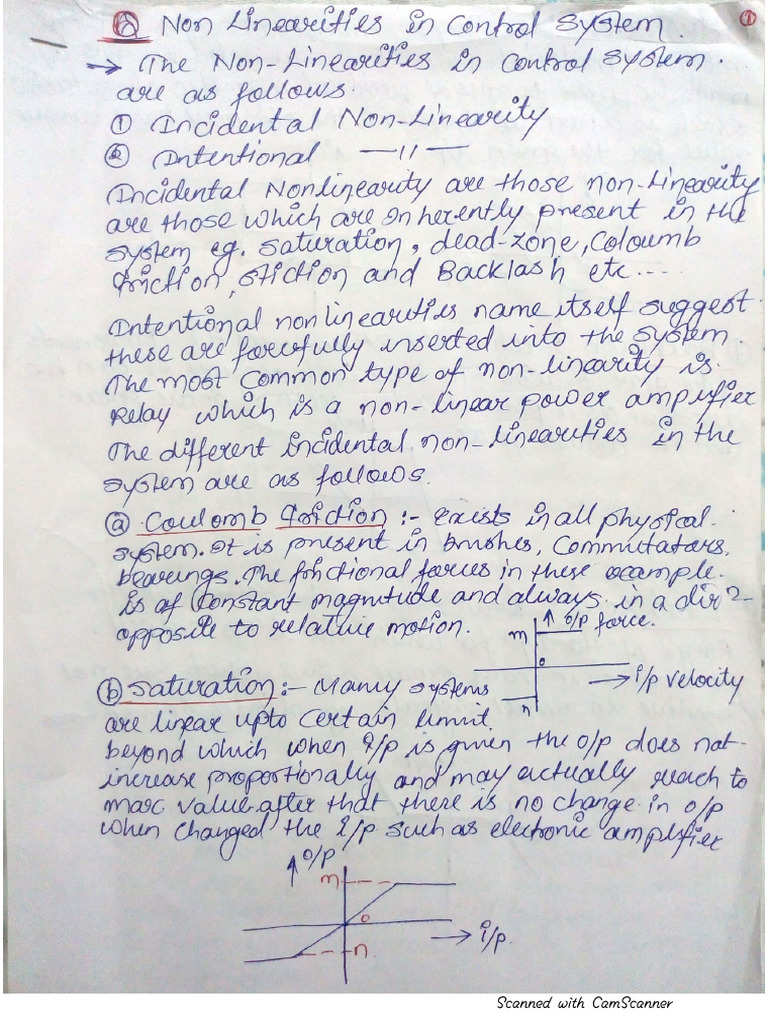 Ⓑ Non Linearities in Control System. ①
→ The Non-Linearities in Control System.
are as follows
① Incidental Non-Linearity
② Intentional —11—
Incidental Nonlinearity are those non-Linearity
are those which are Inherently present in the
System eg. Saturation, dead-zone, Coloumb
friction, Stiction and Backlash etc....
Intentional nonlinearities name itself suggest
these are forcefully inserted into the System
The most common type of non-linearity is.
Relay which is a non-linear power amplifier
The different incidental non-Linearities in the
System are as follows.
ⓐ Coulomb friction :- Exists in all physical.
System. It is present in Brushes, Commutators,
bearings. The frictional forces in these example.
is of constant magnitude and always in a dirn
opposite to relative motion.
↑ o/p force.
m
o
→ i/p velocity
n
ⓑ Saturation :- Many systems
are linear upto certain limit.
beyond which when I/p is given the o/p does not
increase proportionally and may actually reach to
max value. after that there is no change in o/p
when changed the I/p such as electronic amplifier
↑ o/p
m
o
→ i/p.
n.
Scanned with CamScanner